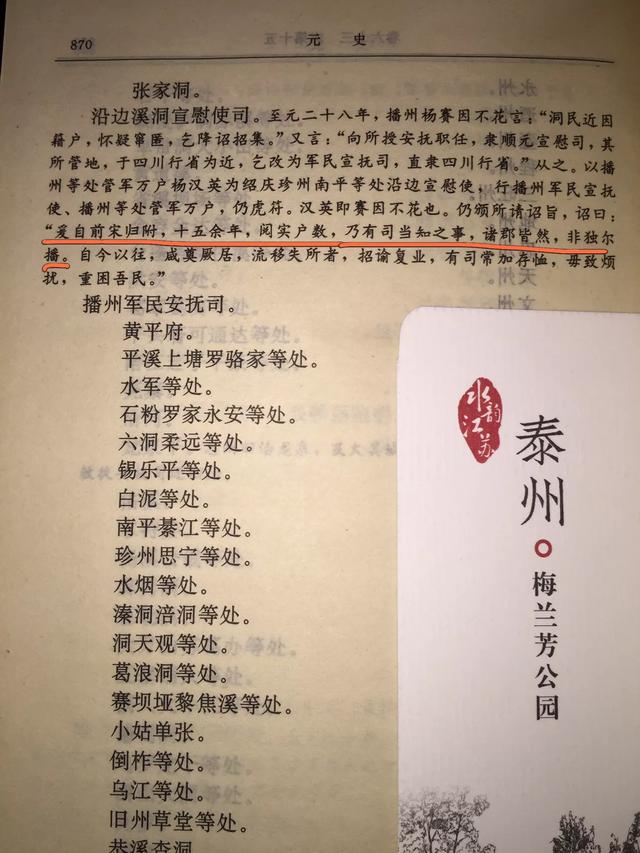 870
元 史
张家洞。
沿边溪洞宣慰使司。至元二十八年，播州杨赛因不花言：“洞民近因
籍户，怀疑窜匿，乞降诏招集。”又言：“向所授安抚职任，隶顺元宣慰司，其
所管地，于四川行省为近，乞改为军民宣抚司，直隶四川行省。”从之。以播
州等处管军万户杨汉英为绍庆珍州南平等处沿边宣慰使，行播州军民宣抚
使、播州等处管军万户，仍虎符。汉英即赛因不花也。仍颁所请诏旨，诏曰：
“爰自前宋归附，十五余年，阅实户数，乃有司当知之事，诸郡皆然，非独尔
播。自今以往，咸奠厥居，流移失所者，招谕复业，有司常加存恤，毋致烦
扰，重困吾民。”
播州军民安抚司。
黄平府。
平溪上塘罗骆家等处。
水军等处。
石粉罗家永安等处。
六洞柔远等处。
锡乐平等处。
白泥等处。
南平綦江等处。
珍州思宁等处。
水烟等处。
溱洞涪洞等处。
洞天观等处。
葛浪洞等处。
赛坝垭黎焦溪等处。
小姑单张。
倒柞等处。
乌江等处。
旧州草堂等处。
恭溪杳洞
水韵江苏
泰州
梅兰芳公园